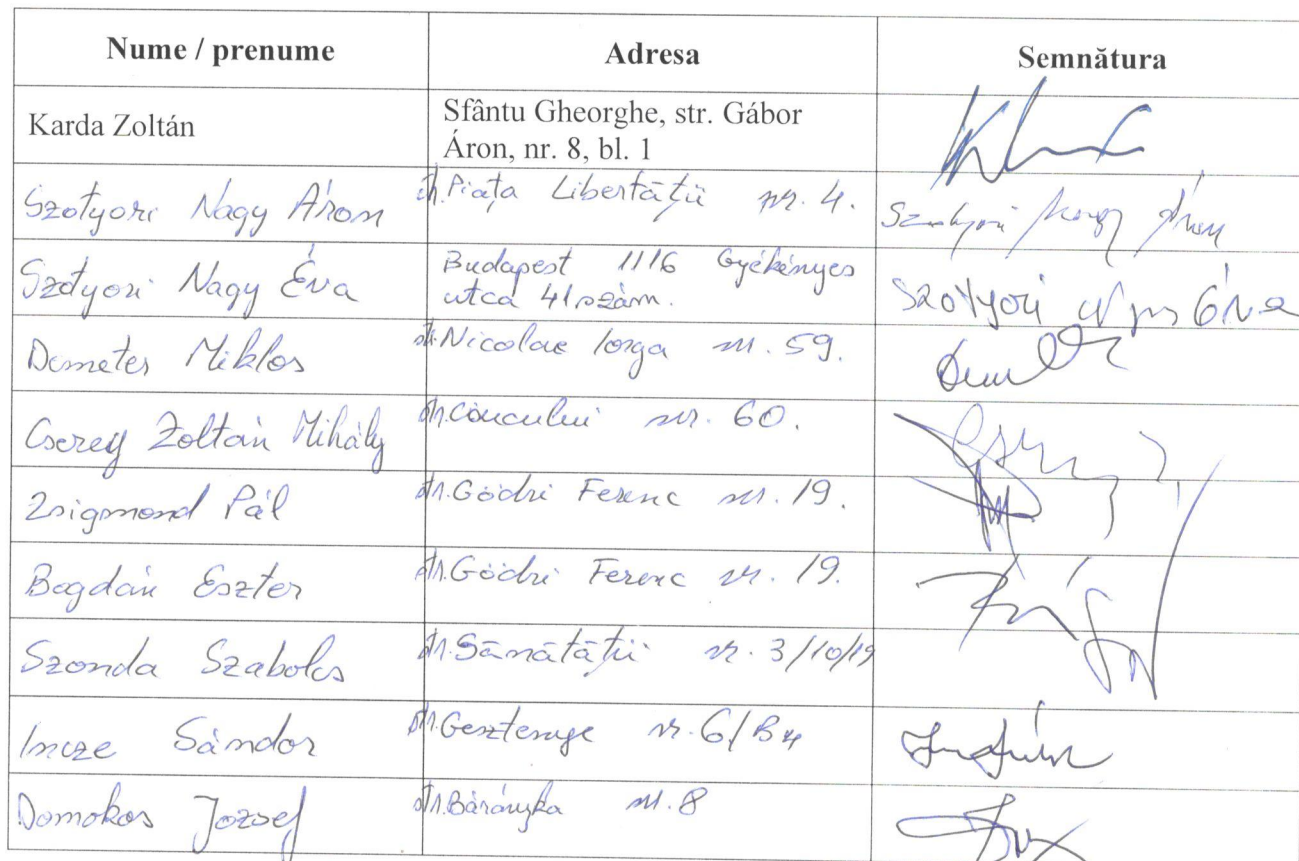 Nume / prenume Adresa Semnătura
Karda Zoltán Sfântu Gheorghe, str. Gábor
Áron, nr. 8, bl. 1
Szotyori Nagy Áron str. Piața Libertății nr. 4. Szotyori Nagy Áron
Szotyori Nagy Éva Budapest 1116 Gyékényes
utca 41 szám. Szotyori Nagy Éva
Demeter Miklos str. Nicolae Iorga nr. 59.
Cserey Zoltán Mihály str. nr. 60.
Zsigmond Pál str. Gödri Ferenc nr. 19.
Bogdán Eszter str. Gödri Ferenc nr. 19.
Szonda Szabolcs str. Sănătății nr. 3/10/19
Incze Sándor str. Gesztenye nr. 6/B4
Domokos Jozsef str. Bárányka nr. 8